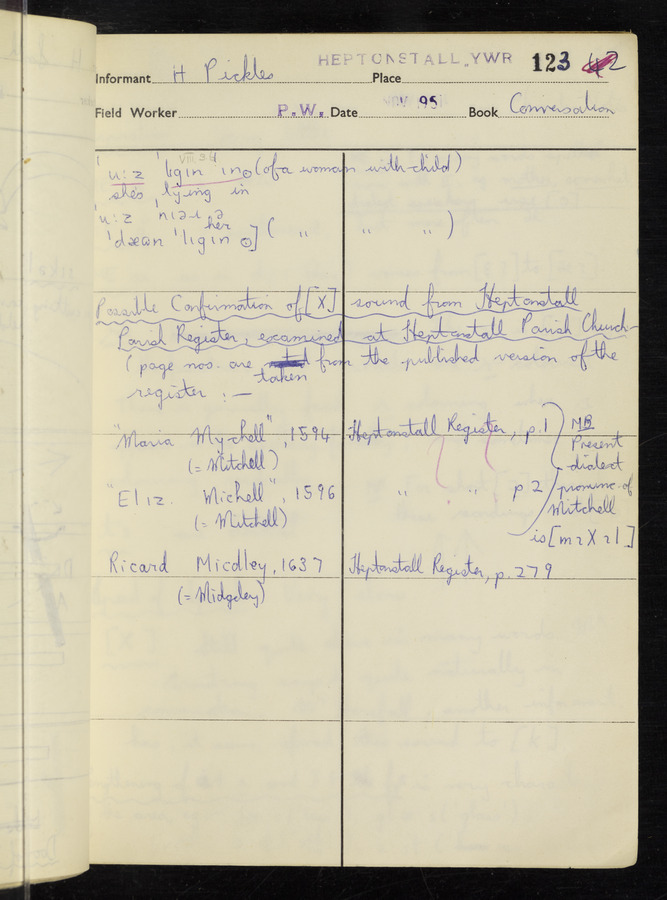 HEPTONSTALL, YWR 123 42
Informant H Pickles Place
Field Worker P.W. Date NOV 195 Book Conversation
VIII 3
'u:z 'ligin in (of a woman with-child)
she's lying in
'u:z
her
'ligin ( " " " )
Possible Confirmation of [χ] sound from Heptonstall
Parish Register, examined at Heptonstall Parish Church
(page nos. are from the published version of the
taken
register :—
"Maria Mychell", 1594 Heptonstall Register, p.1
(= Mitchell)
"Eliz. Michell", 1596 " " , p 2
(= Mitchell)
NB
Present
dialect
pronunc. of
Mitchell
is [mɪχɪl]
Ricard Micdley, 1637 Heptonstall Register, p. 279
(= Midgeley)